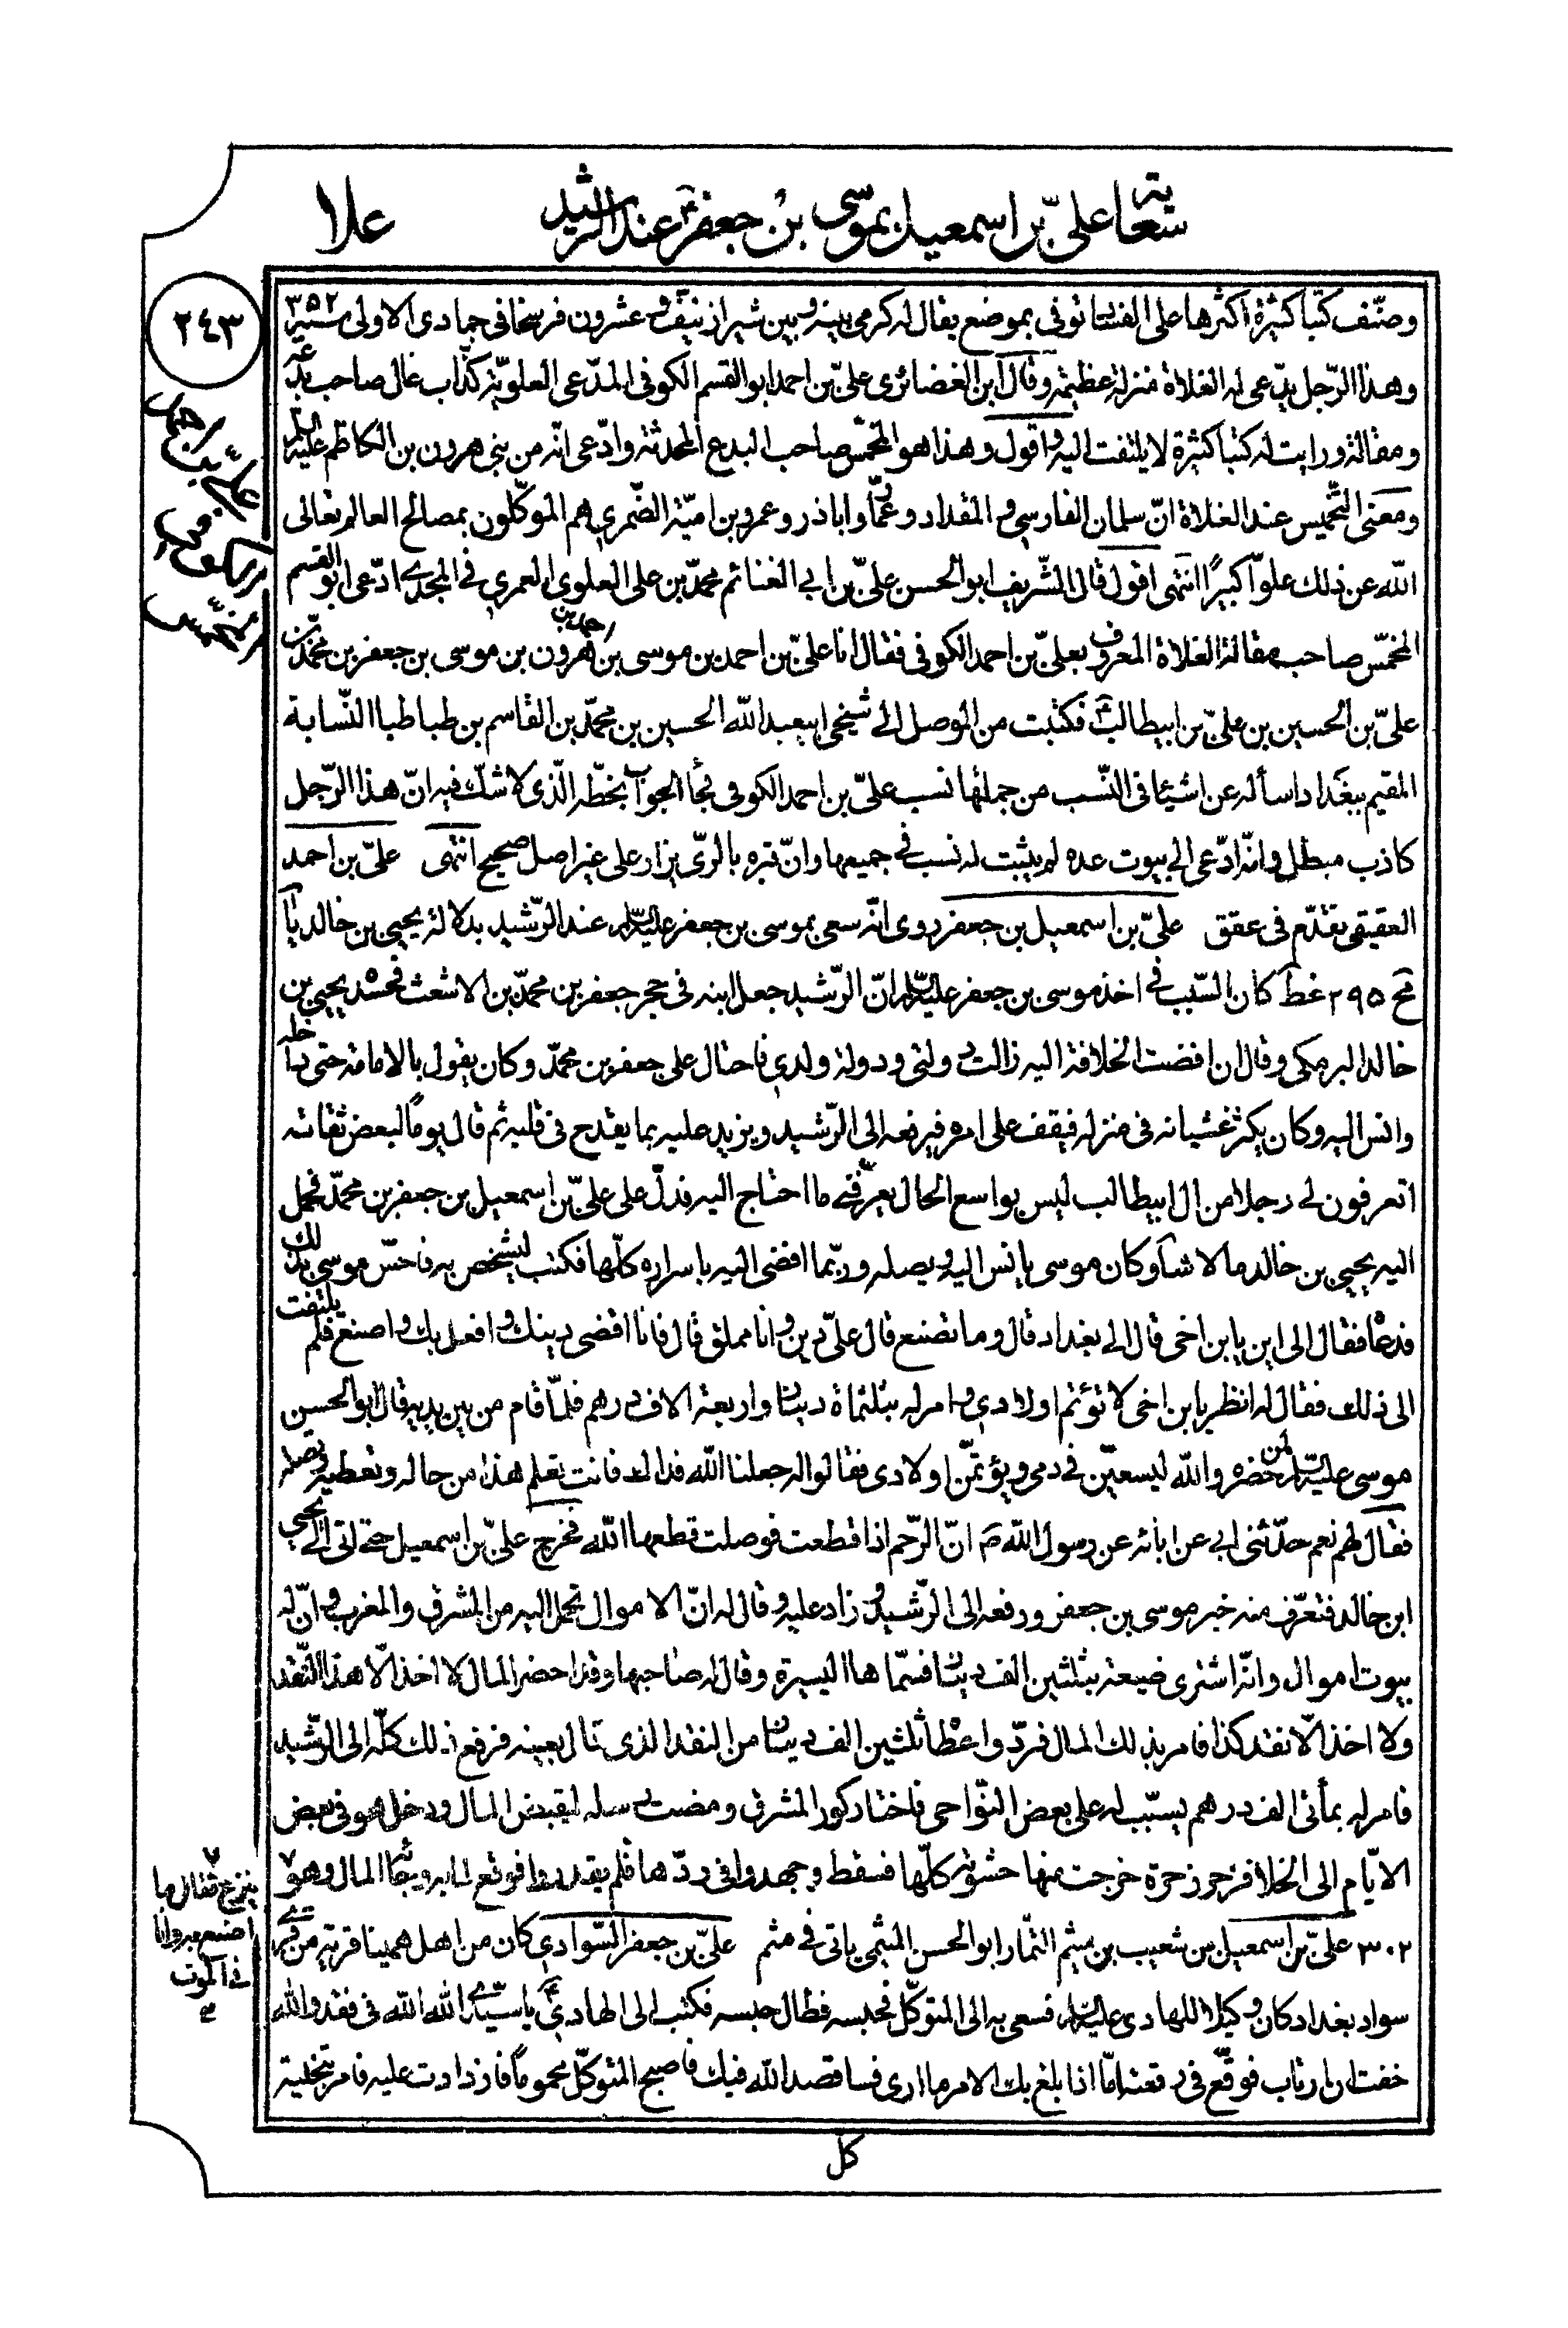 سعاية علىّ بن اسمعيل بموسى بن جعفر ع عند الرشيد
علا
٢٤٣
وصنّف كتبا كثيرة اكثرها على الفساد توفى بموضع يقال له كرمى بينه وبين شيراز نيّف وعشرون فرسخا فى جمادى الاولى سنة ٣٥٢
وهذا الرّجل يدّعى له الغلاة منزلة عظيمة وقال ابن الغضائرى علىّ بن احمد ابو القسم الكوفى المدّعى العلويّة كذّاب غال صاحب بدعة
ومقالة ورايت له كتبا كثيرة لا يلتفت اليه اقول وهذا هو المخمّس صاحب البدع المحدثة وادّعى انّه من بنى هرون بن الكاظم عليه السلم
ومعنى التّخميس عند الغلاة انّ سلمان الفارسى والمقداد وعمّار وابا ذر وعمرو بن اميّة الضّمرى هم الموكّلون بمصالح العالم تعالى
الله عن ذلك علوّا كبيرًا انتهى اقول قال الشّريف ابو الحسن علىّ بن ابى الغنائم محمّد بن على العلوى العمرى فى المجدى ادّعى ابو القسم
المخمّس صاحب مقالة الغلاة المعروف بعلىّ بن احمد الكوفى فقال انا علىّ بن احمد بن موسى بن احمد بن هرون بن موسى بن جعفر بن محمّد بن
علىّ بن الحسين بن علىّ بن ابيطالب ع فكتبت من الموصل الى شيخى ابيعبد الله الحسين بن محمّد بن القاسم بن طباطبا النّسابة
المقيم ببغداد اسأله عن اشياء فى النّسب من جملتها نسب علىّ بن احمد الكوفى فجاء الجواب بخطّه الّذى لا شكّ فيه انّ هذا الرّجل
كاذب مبطل وانّه ادّعى الى بيوت عدة لم يثبت له نسب فى جميعها وانّ قبره بالرّى يزار على غير اصل صحيح انتهى علىّ بن احمد
العقيقى تقدّم فى عقق علىّ بن اسمعيل بن جعفر روى انّه سعى بموسى بن جعفر عليه السلام عند الرّشيد بدلالة يحيى بن خالد يا
مح ٢٩٥ غط كان السّبب فى اخذ موسى بن جعفر عليه السّلام انّ الرّشيد جعل ابنه فى حجر جعفر بن محمّد بن الاشعث فحسده يحيى بن
خالد البرمكى وقال ان افضت الخلافة اليه زالت دولتى ودولة ولدى فاحتال على جعفر بن محمّد وكان يقول بالامامة حتى داخله
وانس اليه وكان يكثر غشيانه فى منزله فيقف على امره فيرفعه الى الرّشيد ويزيد عليه بما يقدح فى قلبه ثم قال يومًا لبعض ثقاته
اتعرفون لى رجلا من ال ابيطالب ليس بواسع الحال يعرّفنى ما احتاج اليه فدلّ على علىّ بن اسمعيل بن جعفر بن محمّد فحمل
اليه يحيى بن خالد مالا شاء وكان موسى يانس اليه ويصله وربّما افضى اليه باسراره كلّها فكتب ليشخص به فاحسّ موسى بذلك
فدعاه فقال الى اين يا بن اخى قال الى بغداد قال وما تصنع قال علىّ دين وانا مملق قال فانا اقضى دينك وافعل بك واصنع فلم يلتفت
الى ذلك فقال له انظر يا بن اخى لا توئتم اولادى وامر له بثلثمأة دينار واربعة الاف درهم فلمّا قام من بين يديه قال ابو الحسن
موسى عليه السّلام لمن حضره والله ليسعينّ فى دمى ويؤتمّن اولادى فقالوا له جعلنا الله فداك فانت تعلم هذا من حاله وتعطيه وتصله
فقال لهم نعم حدّثنى ابى عن ابائه عن رسول الله ص انّ الرّحم اذا قطعت فوصلت قطعها الله فخرج علىّ بن اسمعيل حتى اتى الى يحيى
ابن خالد فتعرّف منه خبر موسى بن جعفر ورفعه الى الرّشيد وزاد عليه وقال له انّ الاموال تحمل اليه من المشرق والمغرب وانّ له
بيوت اموال وانّه اشترى ضيعة بثلثين الف دينار فسمّاها اليسيرة وقال له صاحبها وقد احضر المال لا اخذ الّا هذا النّقد
ولا اخذ الّا نقد كذا فامر بذلك المال فردّ واعطاه ثلثين الف دينار من النقد الذى سال بعينه فرفع ذلك كلّه الى الرّشيد
فامر له بمأتى الف درهم يسبّب له على بعض النّواحى فاختار كور المشرق ومضت رسله ليقبض المال ودخل هو فى بعض
الايّام الى الخلاء فزحر زحرة خرجت منها حشوته كلّها فسقط وجهدوا فى ردّها فلم يقدروا فوقع لما به وجاءه المال وهو
ينزع فقال ما
اصنع به وانا
فى الموت
٣٠٢ علىّ بن اسمعيل بن شعيب بن ميثم التّمار ابو الحسن الميثمى ياتى فى مثم علىّ بن جعفر السّوادى كان من اهل همينا قرية من قرى
سواد بغداد كان وكيلا للهادى عليه السلام فسعى به الى المتوكّل فحبسه فطال حبسه فكتب الى الهادى ع يا سيّدى الله الله فىّ فقد والله
خفت ان ارتاب فوقّع فى رقعته امّا اذا بلغ بك الامر ما ارى فساقصد الله فيك فاصبح المتوكّل محمومًا فازدادت عليه فامر بتخلية
كل